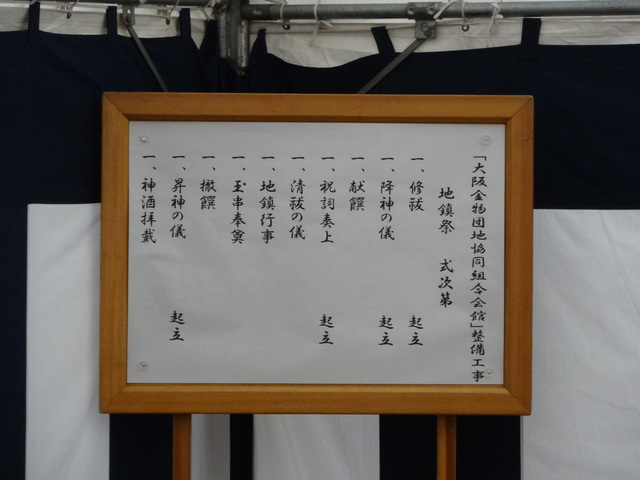 「大阪金物団地協同組合会館」整備工事
地鎮祭　式次第
一、修祓　起立
一、降神の儀　起立
一、献饌
一、祝詞奏上　起立
一、清祓の儀
一、地鎮行事
一、玉串奉奠
一、撤饌
一、昇神の儀　起立
一、神酒拝戴